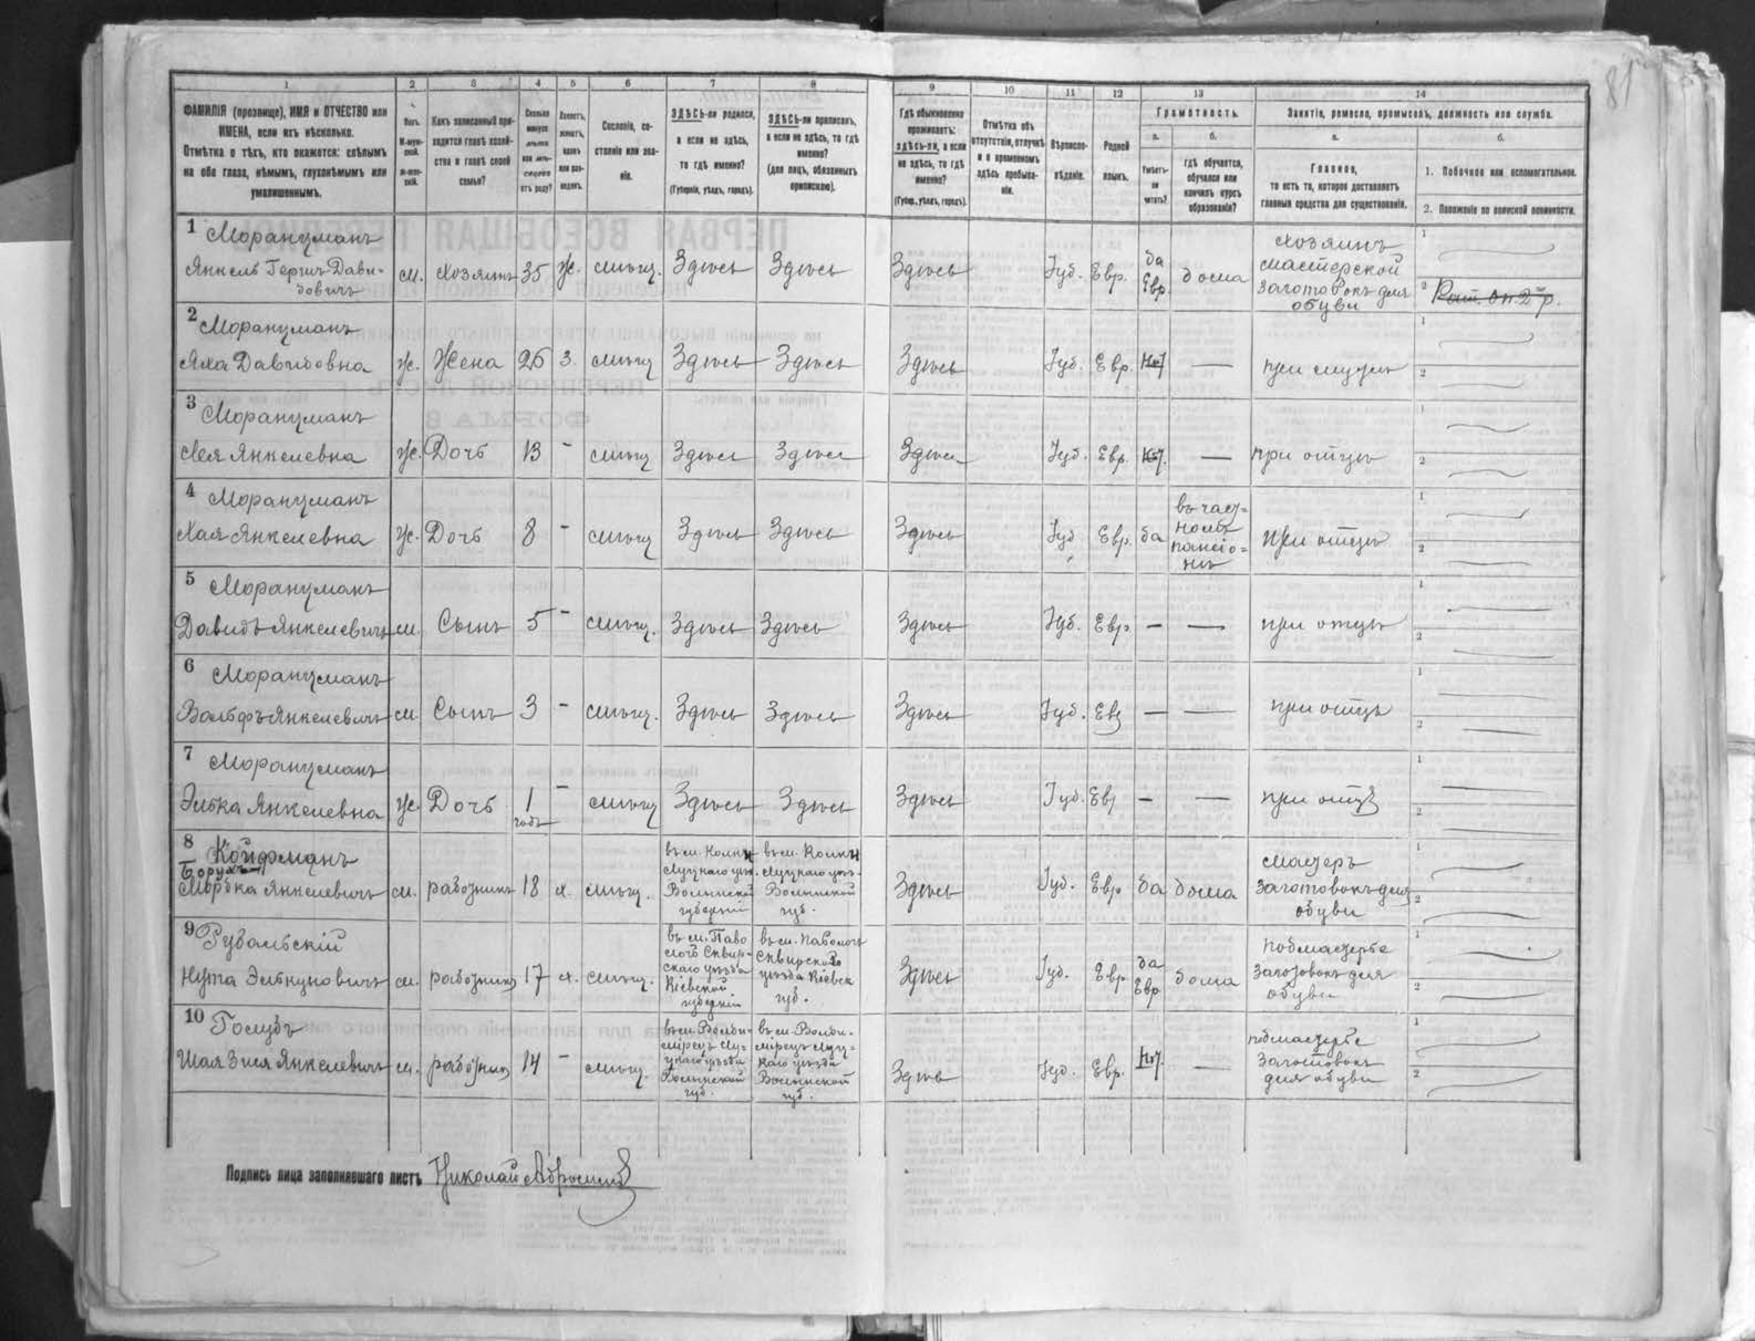 81
1 2 3 4 5 6 7 8 9 10 11 12 13 14
ФАМИЛІЯ (прозвище), ИМЯ и ОТЧЕСТВО или
ИМЕНА, если ихъ нѣсколько.
Отмѣтка о тѣхъ, кто окажется: слѣпымъ
на оба глаза, нѣмымъ, глухонѣмымъ или
умалишеннымъ.
Полъ.
М-муж-
ской.
Ж-жен-
скій.
Какъ записанный при-
ходится главѣ хозяй-
ства и главѣ своей
семьи?
Сколько
минуло
лѣтъ
или мѣ-
сяцевъ
отъ роду?
Холостъ,
женатъ,
вдовъ
или раз-
веденъ.
Сословіе, со-
стояніе или зва-
ніе.
ЗДѢСЬ-ли родился,
а если не здѣсь,
то гдѣ именно?
(Губернія, уѣздъ, городъ).
ЗДѢСЬ-ли приписанъ,
а если не здѣсь, то гдѣ
именно?
(для лицъ, обязанныхъ
припискою).
Гдѣ обыкновенно
проживаетъ:
здѣсь-ли, а если
не здѣсь, то гдѣ
именно?
(Губер., уѣздъ, городъ).
Отмѣтка объ
отсутствіи, отлучкѣ
и о временномъ
здѣсь пребыва-
ніи.
Вѣроиспо-
вѣданіе.
Родной
языкъ.
Грамотность.
а. б.
Умѣетъ-
ли
читать?
гдѣ обучается,
обучался или
кончилъ курсъ
образованія?
Занятіе, ремесло, промыселъ, должность или служба.
а. б.
Главное,
то есть то, которое доставляетъ
главныя средства для существованія.
1. Побочное или вспомогательное.
2. Положеніе по воинской повинности.
1 Моранцманъ
Янкель Гершъ Дави-
довичъ м. хозяинъ 35 ж. мѣщ. Здѣсь Здѣсь Здѣсь Іуд. Евр. да
Евр. дома хозяинъ
мастерской
заготовокъ для
обуви
1
2
2 Моранцманъ
Давидовна ж. Жена 3. мѣщ Здѣсь Здѣсь Здѣсь Іуд. Евр. нѣт — при мужѣ
1
2
3 Моранцманъ
Лея Янкелевна ж. Дочь 13 - мѣщ Здѣсь Здѣсь Здѣсь Іуд. Евр. нѣт. — при отцѣ
1
2
4 Моранцманъ
Хая Янкелевна ж. Дочь 8 - мѣщ Здѣсь Здѣсь Здѣсь Іуд Евр. да въ част-
номъ
пансіо-
нѣ при отцѣ
1
2
5 Моранцманъ
Давидъ Янкелевичъ м. Сынъ 5 - мѣщ. Здѣсь Здѣсь Здѣсь Іуд. Евр — — при отцѣ
1
2
6 Моранцманъ
Вольфъ Янкелевичъ м. Сынъ 3 - мѣщ. Здѣсь Здѣсь Здѣсь Іуд. Евр — — при отцѣ
1
2
7 Моранцманъ
Элька Янкелевна ж. Дочь 1
годъ - мѣщ Здѣсь Здѣсь Здѣсь Іуд. Евр — — при отцѣ
1
2
8 Койфманъ
Борухъ
Янкелевичъ м. работникъ 18 х. мѣщ. въ м. Колки
Луцкаго уѣз.
Волынской
губерніи въ м. Колки
Луцкаго уѣз.
Волынской
губ. Здѣсь Іуд. Евр да дома мастеръ
заготовокъ для
обуви
1
2
9 Рубальскій
Нута м. работникъ 17 х. мѣщ. въ м. Паво
лочь Сквир-
скаго уѣзда
Кіевской
губерніи въ м. Паволочь
Сквирскаго
уѣзда Кіевск
губ. Здѣсь Іуд. Евр да
Евр дома подмастерье
заготовокъ для
обуви
1
2
10 Голубъ
Янкелевичъ м. работник 14 - мѣщ. въ м. Влади-
мірец Лу-
цкаго уѣзда
Волынской
губ. въ м. Влади-
мірец Луц-
каго уѣзда
Волынской
губ. Здѣсь Іуд. Евр. нѣт. — подмастерье
заготовок
для обуви
1
2
Подпись лица заполнявшаго листъ Николай